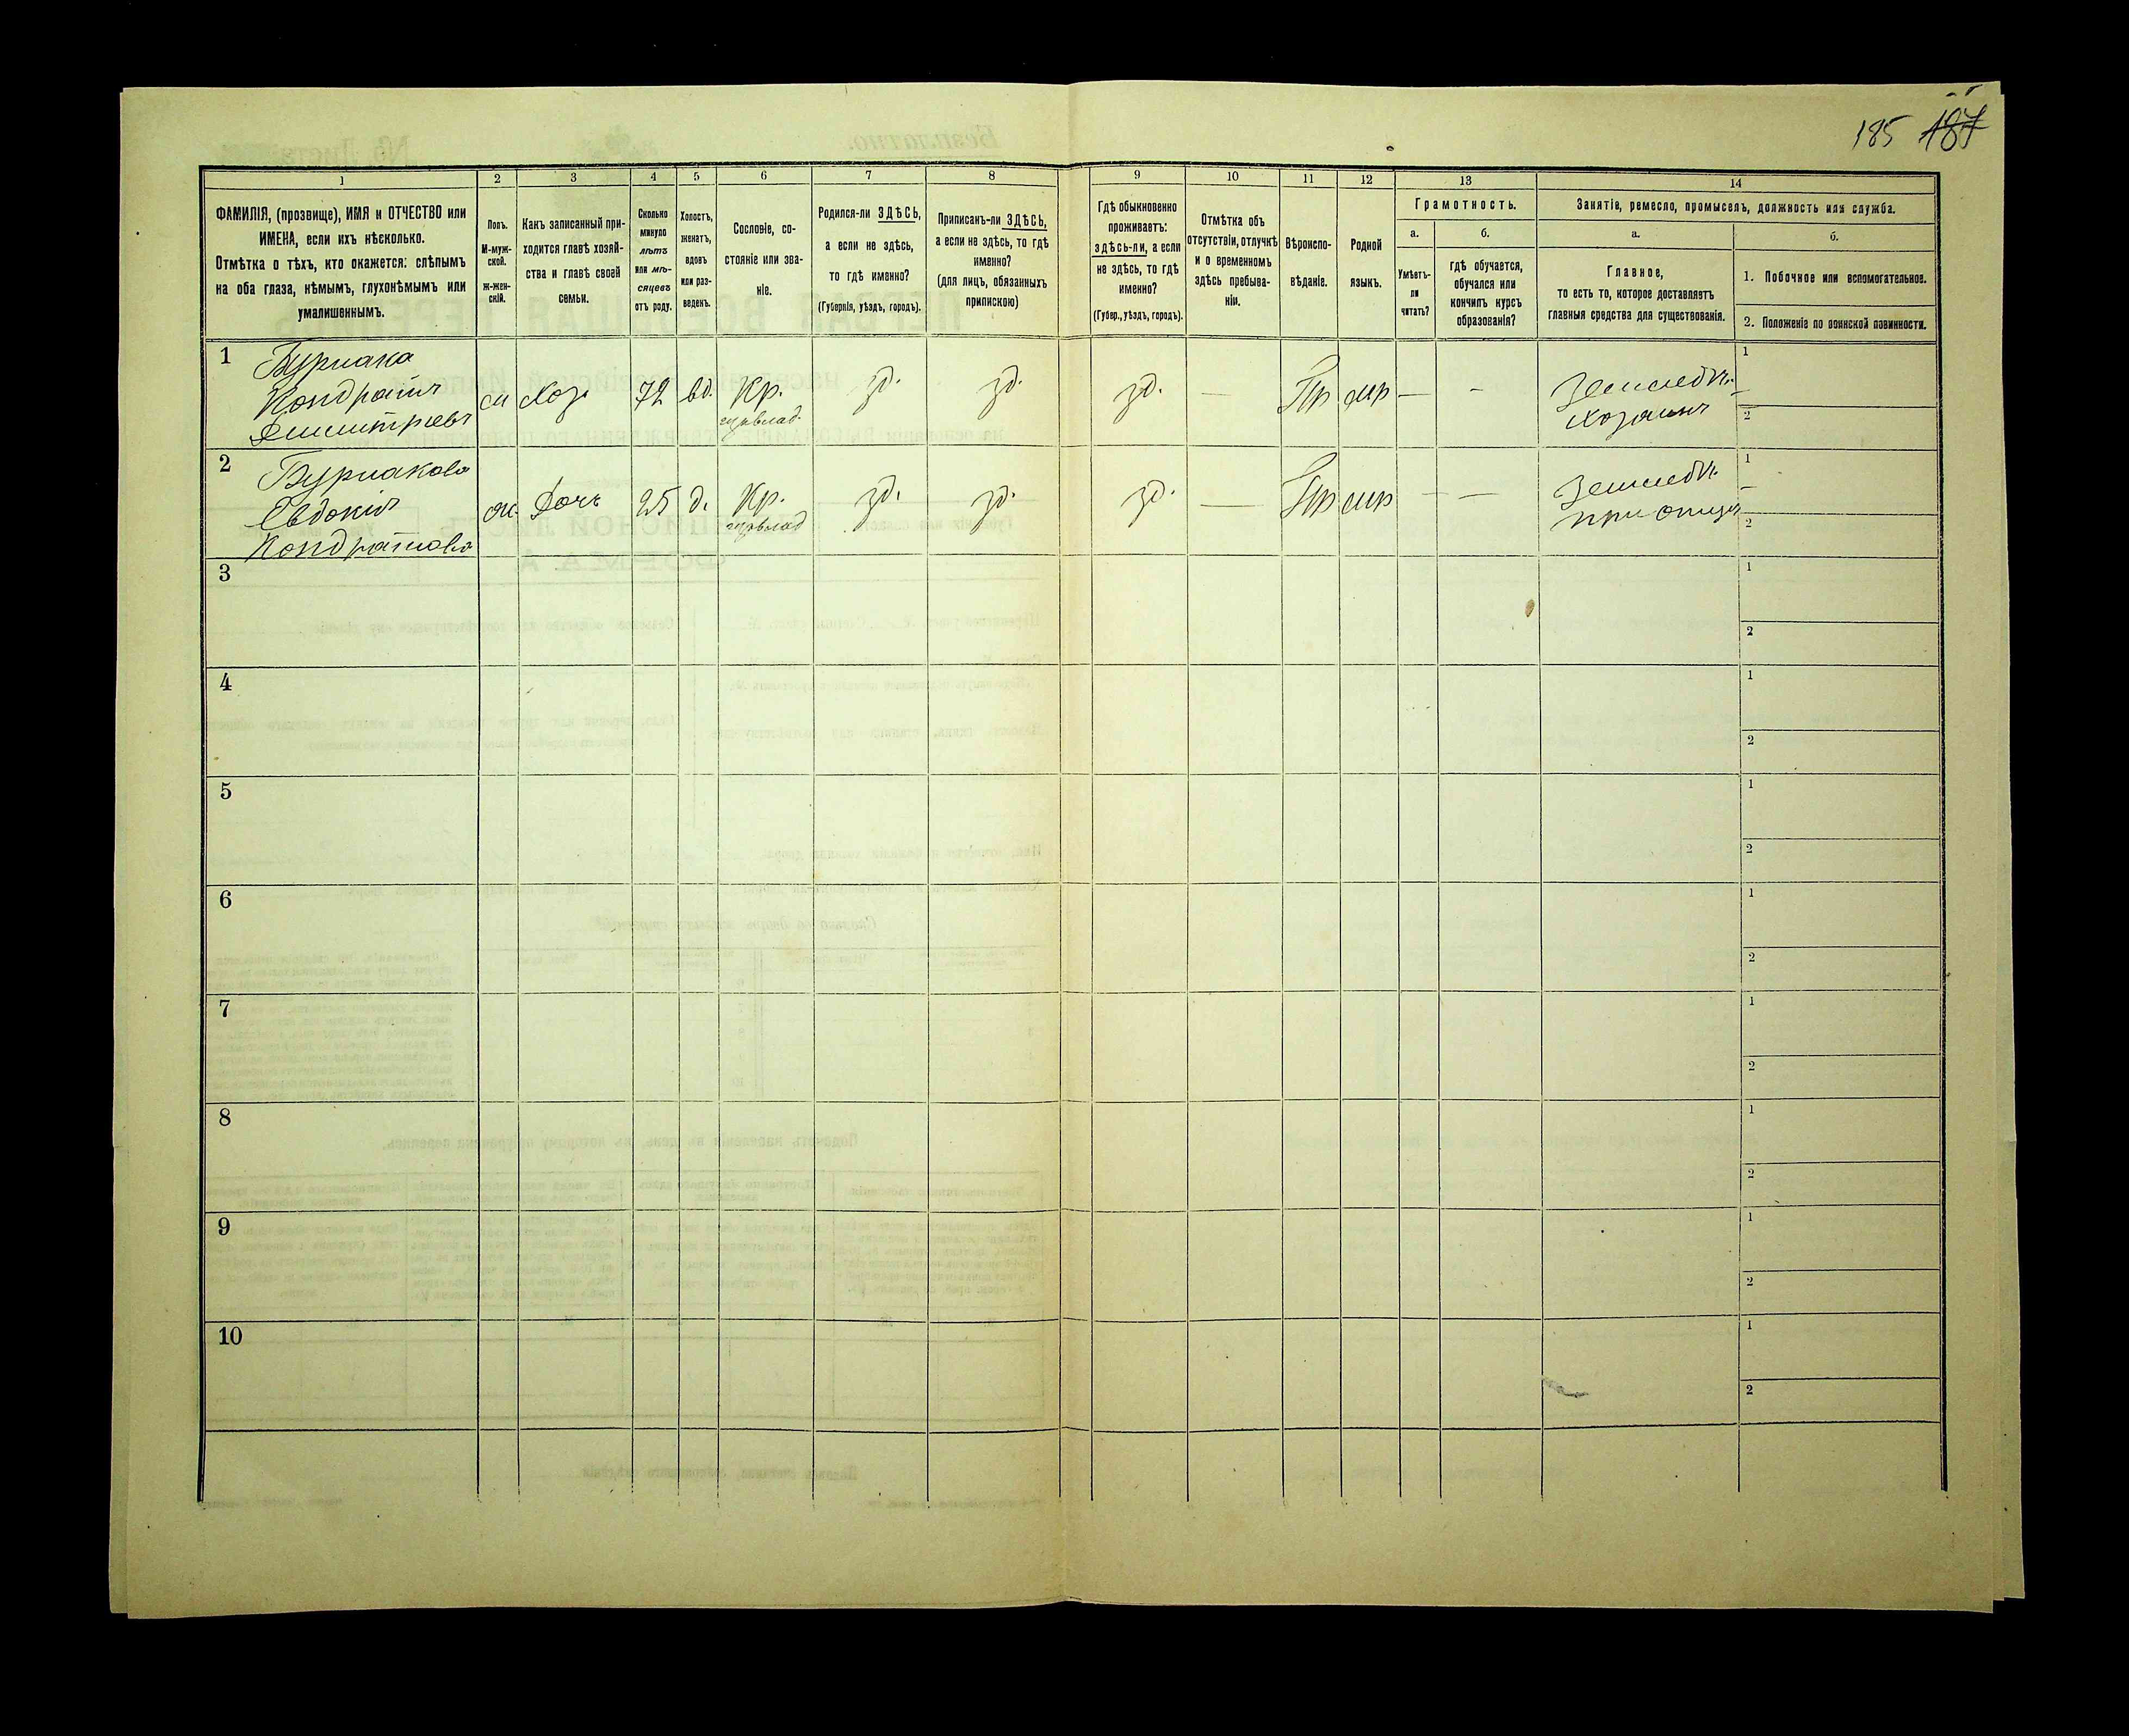 185 187
1
2
3
4
5
6
7
8
9
10
11
12
13
14
ФАМИЛІЯ, (прозвище), ИМЯ и ОТЧЕСТВО или
ИМЕНА, если ихъ нѣсколько.
Отмѣтка о тѣхъ, кто окажется: слѣпымъ
на оба глаза, нѣмымъ, глухонѣмымъ или
умалишеннымъ.
Полъ.
М-муж-
ской.
ж-жен-
скій.
Какъ записанный при-
ходится главѣ хозяй-
ства и главѣ своей
семьи.
Сколько
минуло
лѣтъ
или мѣ-
сяцевъ
отъ роду.
Холостъ,
женатъ,
вдовъ
или раз-
веденъ.
Сословіе, со-
стояніе или зва-
ніе.
Родился-ли ЗДѢСЬ,
а если не здѣсь,
то гдѣ именно?
(Губернія, уѣздъ, городъ).
Приписанъ-ли ЗДѢСЬ,
а если не здѣсь, то гдѣ
именно?
(для лицъ, обязанныхъ
припискою)
Гдѣ обыкновенно
проживаетъ:
здѣсь-ли, а если
не здѣсь, то гдѣ
именно?
(Губер., уѣздъ, городъ).
Отмѣтка объ
отсутствіи, отлучкѣ
и о временномъ
здѣсь пребыва-
ніи.
Вѣроиспо-
вѣданіе.
Родной
языкъ.
Грамотность.
а.
Умѣетъ-
ли
читать?
б.
гдѣ обучается,
обучался или
кончилъ курсъ
образованія?
Занятіе, ремесло, промыселъ, должность или служба.
а.
Главное,
то есть то, которое доставляетъ
главныя средства для существованія.
б.
1. Побочное или вспомогательное.
2. Положеніе по воинской повинности.
1 Бурлака
Кондратъ
Дмитріевъ
м Хоз. 72 вд. Кр. зд. зд. зд. — Пр мр — -
Земледѣл.
хозяинъ
1 -
2
2 Бурлакова
Евдокія
Кондратова
ж Дочь 25 д. Кр. зд. зд. зд. — Пр мр — —
Земледѣл.
при отцѣ
1 -
2
3
1
2
4
1
2
5
1
2
6
1
2
7
1
2
8
1
2
9
1
2
10
1
2